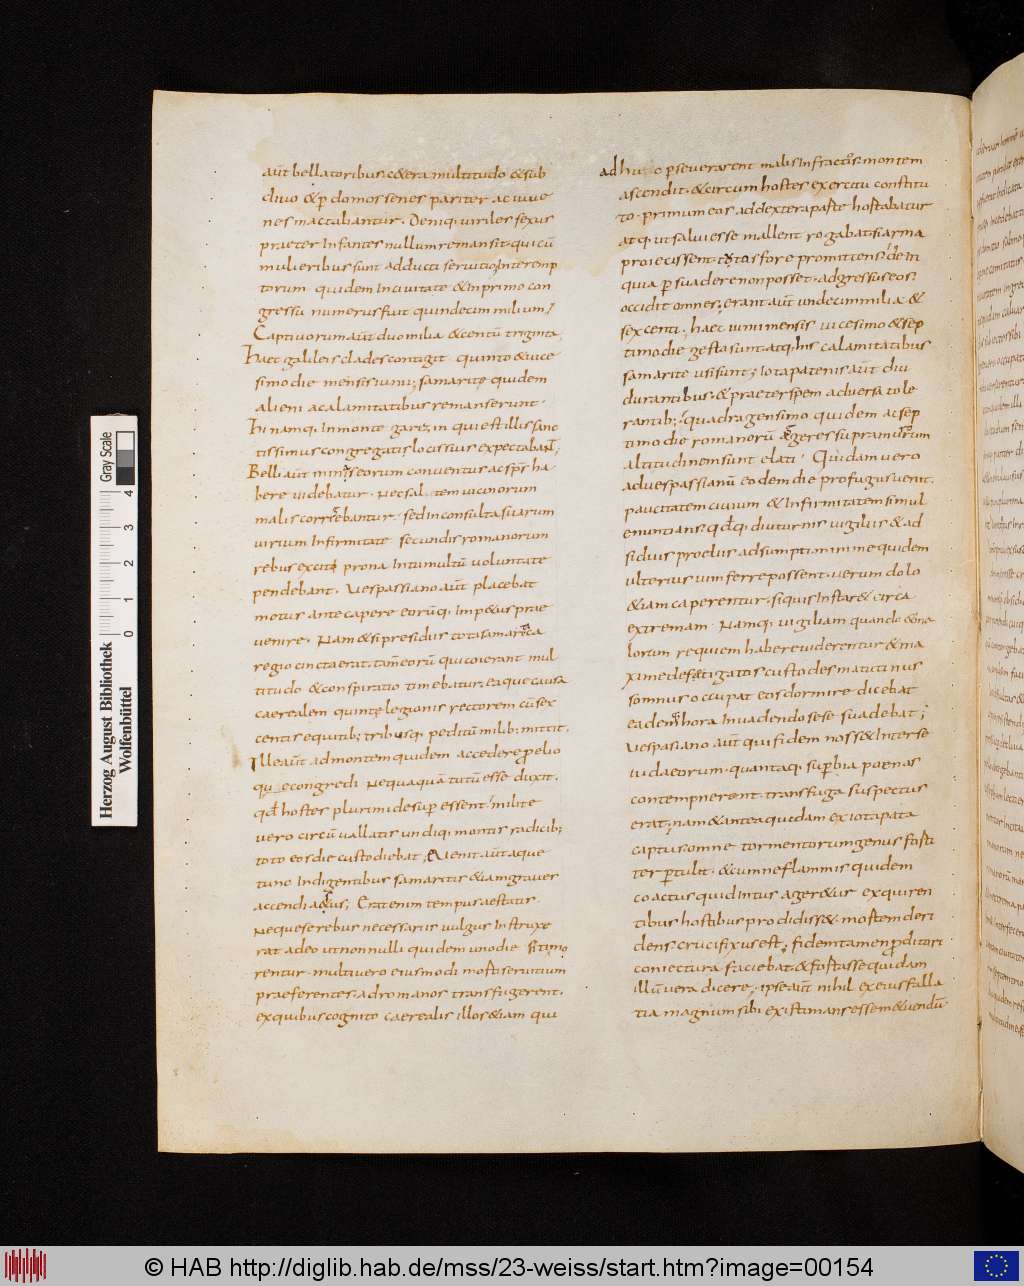 aut̄ bellatoribus. c&era multitudo &sub
diuo &p domos senes pariter ac iuue
nes mactabantur. Deniq; uiriles sexus
praeter Infantes nullum remansit. qui cū
mulieribus sunt adducti seruitio; Interemp
torum quidem Inciuitate &Inprimo con
gressu numerus fuit quindecim milium;
Captiuorum aut̄ duo milia &centū triginta;
haec galileis clades contigit quinto &uice
simo die mensis iunii; samaritę quidem
alieni acalamitatibus remanserunt.
hi namq; Inmonte garizin qui est illis sanc
tissimus congregatis locis suis expectabant;
Belli aut̄ minis eorum conuentus ac sp̄s ha
bere uidebatur. Nec saltem uicinorum
malis corrigebantur. sed inconsulta suarum
uirium Infirmitate secundis romanorum
rebus prona Intumultū uoluntate
pendebant. Vespassiano aut̄ placebat
motus ante capere eorūq; Imp&us prae
uenire. Nam &si presidiis tota samaritica
regio cincta erat. tam̄ eorū qui coierant mul
titudo &conspiratio timebatur. eaque causa
caerealem quintę legionis rectorem cū sex
centis equitib; tribusq; peditū milib; mittit.
Ille aut̄ ad montem quidem accedere proelio
que congredi Nequaquā tutū esse duxit.
qd̄ hostes plurimi desup essent. milite
uero circū uallatis undiq; montis radicib;
toto eos die custodiebat; Euenit aut̄ aque
tunc Indigentibus samaritis &iam grauer
accendi aestus; Erat enim tempus aestatis.
Neque se rebus necessariis uulgus Instruxe
rat adeo ut nonnulli quidem uno die siti mo
rentur. multi uero eiusmodi morti seruitium
praeferentes. ad romanos transfugerent.
exquibus cognito caerealis illos &iam qui
adhuc pseuerarent malis Infractos. montem
ascendit. &circum hostes exercitu constitu
to. primum eos addextera paste hostabatur
atq; ut salui esse mallent rogabat. si arma
proiecissent. tutos fore promittens; de In
quia psuadere non posset. adgressus eos.
occidit omnes; erant aut̄ undecim milia &
sexcenti. haec iunii mensis uicesimo &sep
timo die gesta sunt. atq; his calamitatibus
samaritę usi sunt; Iotapatenis aut̄ diu
durantibus. &praeter spem aduersa tole
rantib; quadragensimo quidem ac sep
timo die romanorū aggeres supra murorum
altitudinem sunt elati. Quidam uero
ad uespassianū eodem die profugus uenit.
paucitatem ciuium &Infirmitatem simul
enuntians. qd̄q; diuturnis uigiliis &ad
siduis proeliis adsumpti minime quidem
ulterius uim ferre possent. uerum dolo
&iam caperentur. siquis Instar& circa
extremam. Namq; uigiliam quando &ma
lorum requiem habere uiderentur. &ma
xime defetigatos custodes matutinus
somnus occupat eos dormire dicebat
eademq; hora Inuadendo sese suadebat;
Vespasiano aut̄ qui fidem nosset Interse
iudaeorum. quantaq; supbia poenas
contempnerent. transfuga suspectus
erat; nam &antea quedam ex iotapata
captus omne tormentorum genus forti
ter ptulit. &cum ne flammis quidem
coactus quid Intus ager&ur exquiren
tibus hostibus prodidiss&. mortem deri
dens. crucifixus est; fidem tamen proditori
coniectura faciebat. &fortasse quidam
illū uera dicere; ipse aut̄ nihil exeius falla
tia magnum sibi existimans essem &uendū
Herzog August Bibliothek
Wolfenbüttel
0 1 2 3 4
Gray Scale
© HAB http://diglib.hab.de/mss/23-weiss/start.htm?image=00154